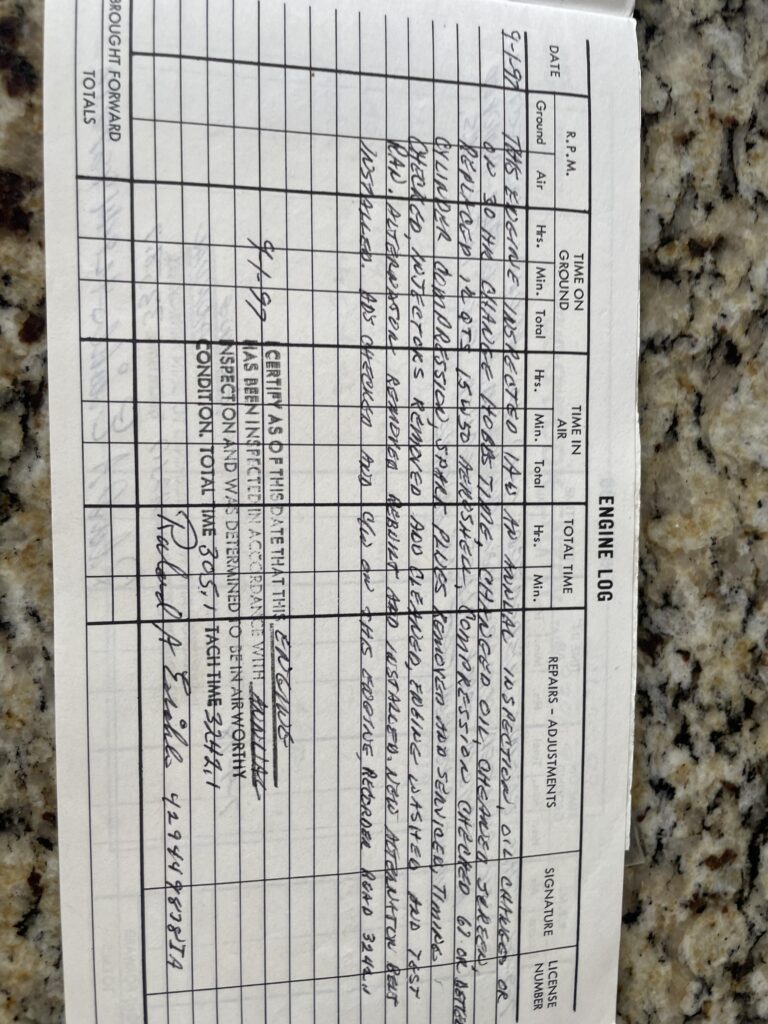 ENGINE LOG
DATE R.P.M. TIME ON GROUND TIME IN AIR TOTAL TIME REPAIRS - ADJUSTMENTS SIGNATURE LICENSE NUMBER
Ground Air Hrs. Min. Total Hrs. Min. Total Hrs. Min.
9-1-97 THIS ENGINE INSPECTED IAW AN ANNUAL INSPECTION, OIL CHANGED OR
ON 30 HR CHANGE HOBBS TIME, CHANGED OIL CLEANED SCREEN,
REPLACED 12 QTS 15W50 AEROSHELL, COMPRESSION CHECKED 67 OR BETTER
CYLINDER COMPRESSION, SPARK PLUGS REMOVED AND SERVICED, TIMING
CHECKED, INJECTORS REMOVED AND CLEANED, ENGINE WASHED AND TEST
RAN. ALTERNATOR REMOVED REBUILT AND INSTALLED. NEW ALTERNATOR BELT
INSTALLED. ADS CHECKED AND C/W ON THIS ENGINE, RECORDER READ 3242.1
9-1-97 I CERTIFY AS OF THIS DATE THAT THIS ENGINE
HAS BEEN INSPECTED IN ACCORDANCE WITH ANNUAL
INSPECTION AND WAS DETERMINED TO BE IN AIRWORTHY
CONDITION. TOTAL TIME 305.1 TACH TIME 3242.1
A 429449878IA
BROUGHT FORWARD
TOTALS